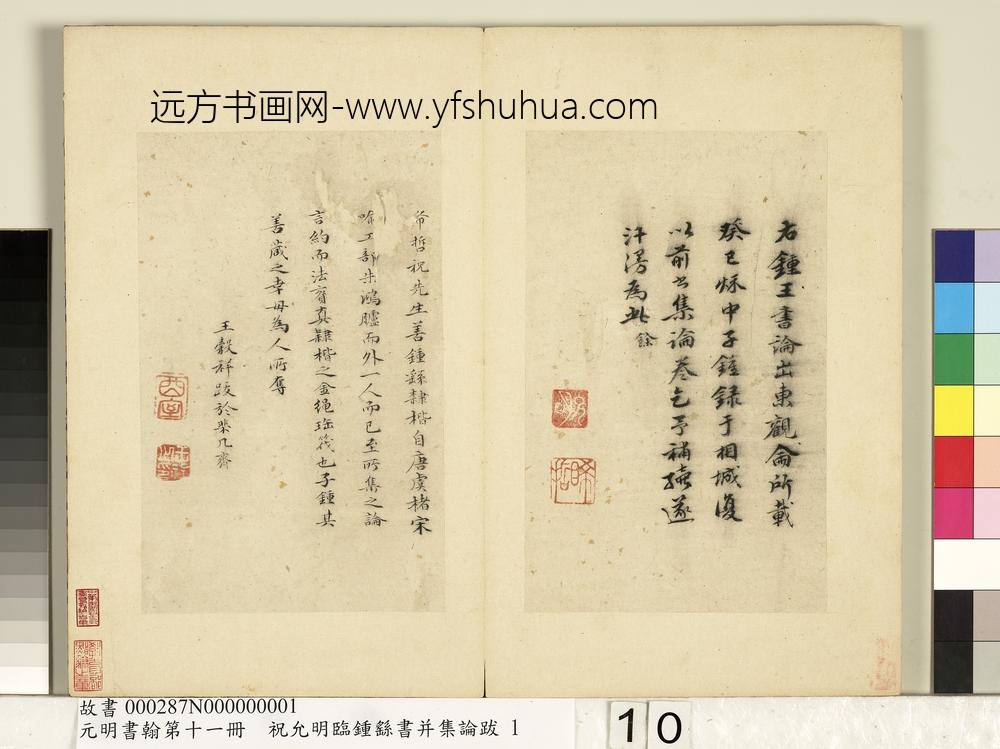 远方书画网-www.yfshuhua.com
右鍾王書論出東觀侖所載
癸巳秌中子鍾録于相城復
以前出集論卷乞予補遂
汗漫為此餘
希哲祝先生善鍾繇隸楷自唐虞楮宋
喻工部朱鴻臚而外一人而已至所集之論
言約而法育真隸楷之金繩珎筏也子鍾其
善葴之幸毋為人所奪
王穀祥跋於棐几齋
酉室
故書 000287N000000001
元明書翰第十一冊 祝允明臨鍾繇書并集論跋 1
10